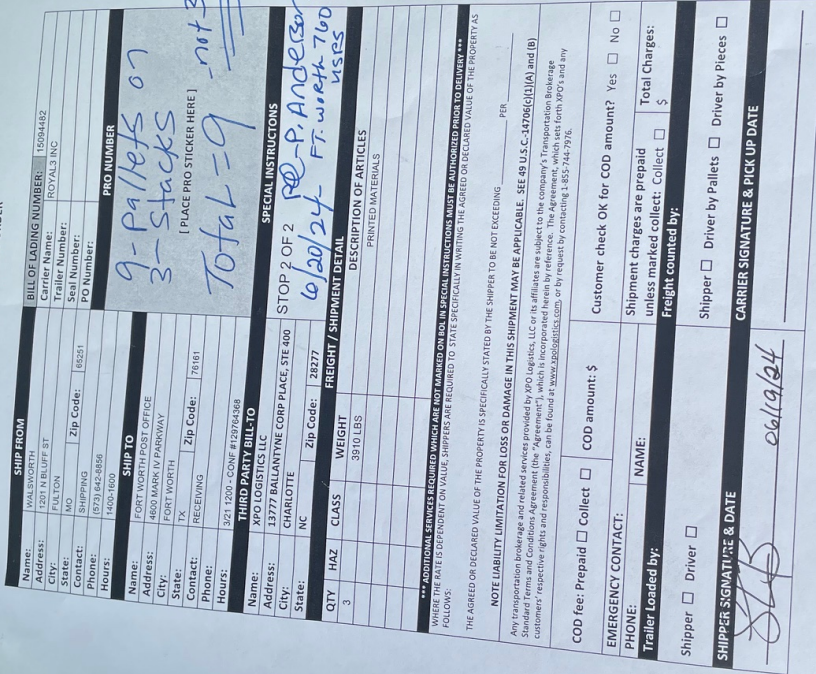 SHIP FROM
Name: WALSWORTH
Address: 1201 N BLUFF ST
City: FULTON
State: MO Zip Code: 65251
Contact: SHIPPING
Phone: (573) 642-8856
Hours: 1400-1600
BILL OF LADING NUMBER: 15094482
Carrier Name: ROYAL3 INC
Trailer Number:
Seal Number:
PO Number:
SHIP TO
Name: FORT WORTH POST OFFICE
Address: 4600 MARK IV PARKWAY
City: FORT WORTH
State: TX Zip Code: 76161
Contact: RECEIVING
Phone:
Hours: 3/21 1200 - CONF #129764368
PRO NUMBER
9-Pallets on
3-Stacks
[ PLACE PRO STICKER HERE ]
Total = 9 -not 3
THIRD PARTY BILL-TO
Name: XPO LOGISTICS LLC
Address: 13777 BALLANTYNE CORP PLACE, STE 400
City: CHARLOTTE
State: NC Zip Code: 28277
SPECIAL INSTRUCTONS
STOP 2 OF 2
P. Anderson
6/20/24- FT. Worth 760
USPS
FREIGHT / SHIPMENT DETAIL
QTY HAZ CLASS WEIGHT DESCRIPTION OF ARTICLES
3 3910 LBS PRINTED MATERIALS
*** ADDITIONAL SERVICES REQUIRED WHICH ARE NOT MARKED ON BOL IN SPECIAL INSTRUCTIONS MUST BE AUTHORIZED PRIOR TO DELIVERY ***
WHERE THE RATE IS DEPENDENT ON VALUE, SHIPPERS ARE REQUIRED TO STATE SPECIFICALLY IN WRITING THE AGREED OR DECLARED VALUE OF THE PROPERTY AS
FOLLOWS:
THE AGREED OR DECLARED VALUE OF THE PROPERTY IS SPECIFICALLY STATED BY THE SHIPPER TO BE NOT EXCEEDING PER
NOTE LIABILITY LIMITATION FOR LOSS OR DAMAGE IN THIS SHIPMENT MAY BE APPLICABLE. SEE 49 U.S.C.-14706(c)(1)(A) and (B)
Any transportation brokerage and related services provided by XPO Logistics, LLC or its affiliates are subject to the company's Transportation Brokerage
Standard Terms and Conditions Agreement (the "Agreement"), which is incorporated herein by reference. The Agreement, which sets forth XPO's and any
customers' respective rights and responsibilities, can be found at www.xpologistics.com, or by request by contacting 1-855-744-7976.
COD fee: Prepaid Collect COD amount: $ Customer check OK for COD amount? Yes No
EMERGENCY CONTACT:
PHONE: NAME:
Shipment charges are prepaid
unless marked collect: Collect
Total Charges:
$
Trailer Loaded by:
Shipper Driver
Freight counted by:
Shipper Driver by Pallets Driver by Pieces
SHIPPER SIGNATURE & DATE
06/19/24
CARRIER SIGNATURE & PICK UP DATE